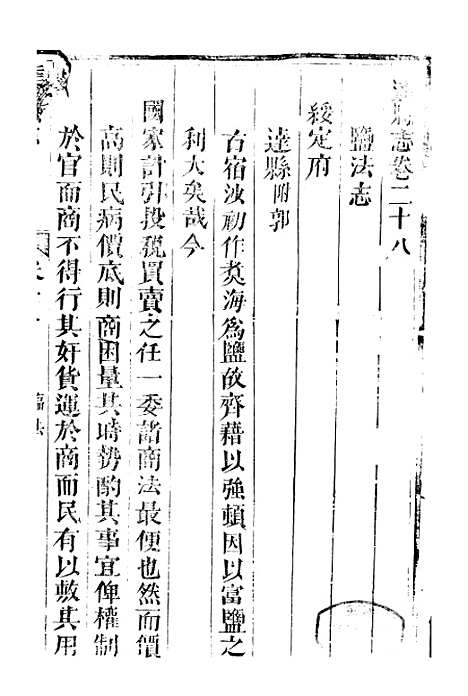 達縣志卷二十八
鹽法志
綏定府
達縣附郭
古宿沙初作煑海爲鹽故齊藉以強頓因以富鹽之
利大矣哉今
國家計引投税買賣之任一委諸商法最便也然而價
高則民病價底則商困量其時勢酌其事宜俾權制
於官而商不得行其奸貨運於商而民有以敷其用
鹽法